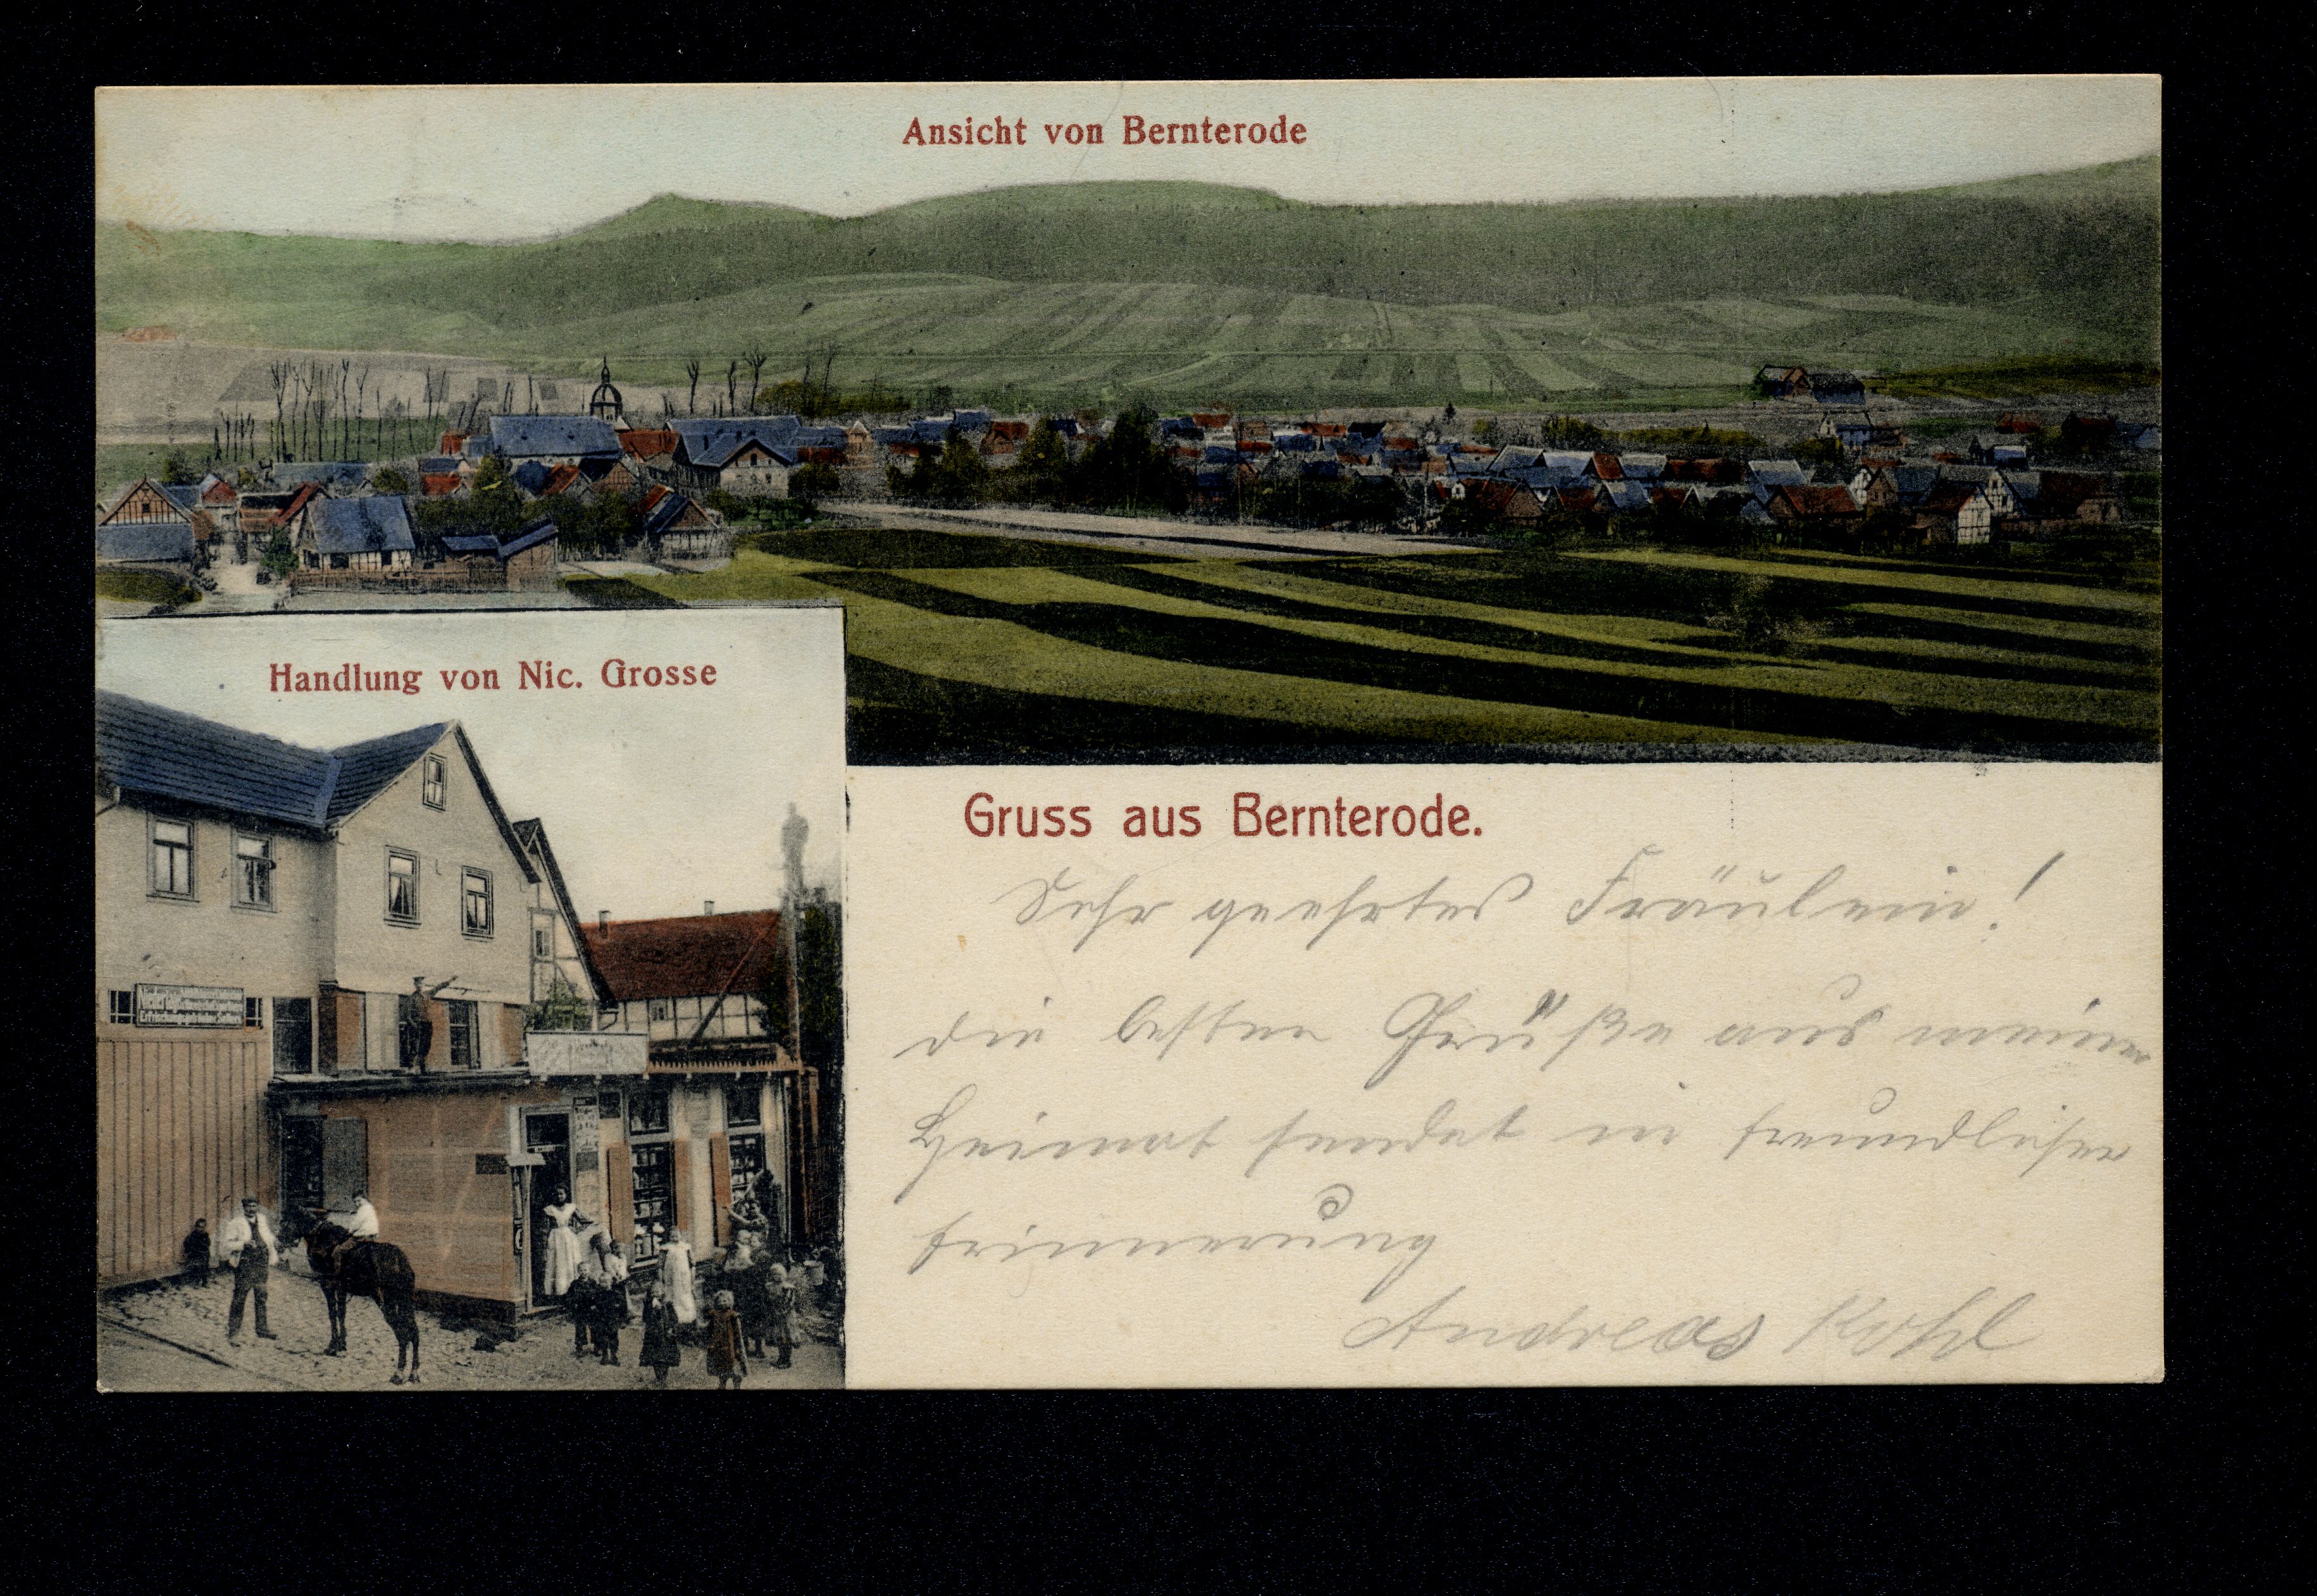 Ansicht von Bernterode
Handlung von Nic. Grosse
Erfrischungsgetränke Selters
Gruss aus Bernterode.
Sehr geehrtes Fräulein!
die besten Grüße aus meiner
Heimat sendet in freundlicher
Erinnerung
Andreas Kohl